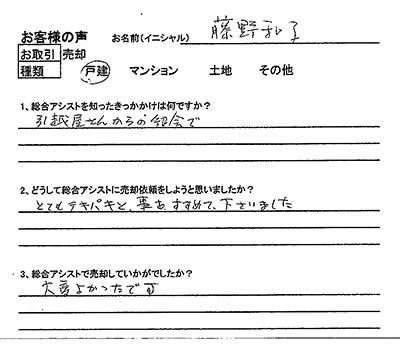 お客様の声 お名前(イニシャル) 藤野和子
お取引 売却
種類 戸建 マンション 土地 その他
1、総合アシストを知ったきっかけは何ですか?
引越屋さんからの紹会で
2、どうして総合アシストに売却依頼をしようと思いましたか?
とてもテキパキと、事をすすめて、下さいました
3、総合アシストで売却していかがでしたか?
大変よかったです